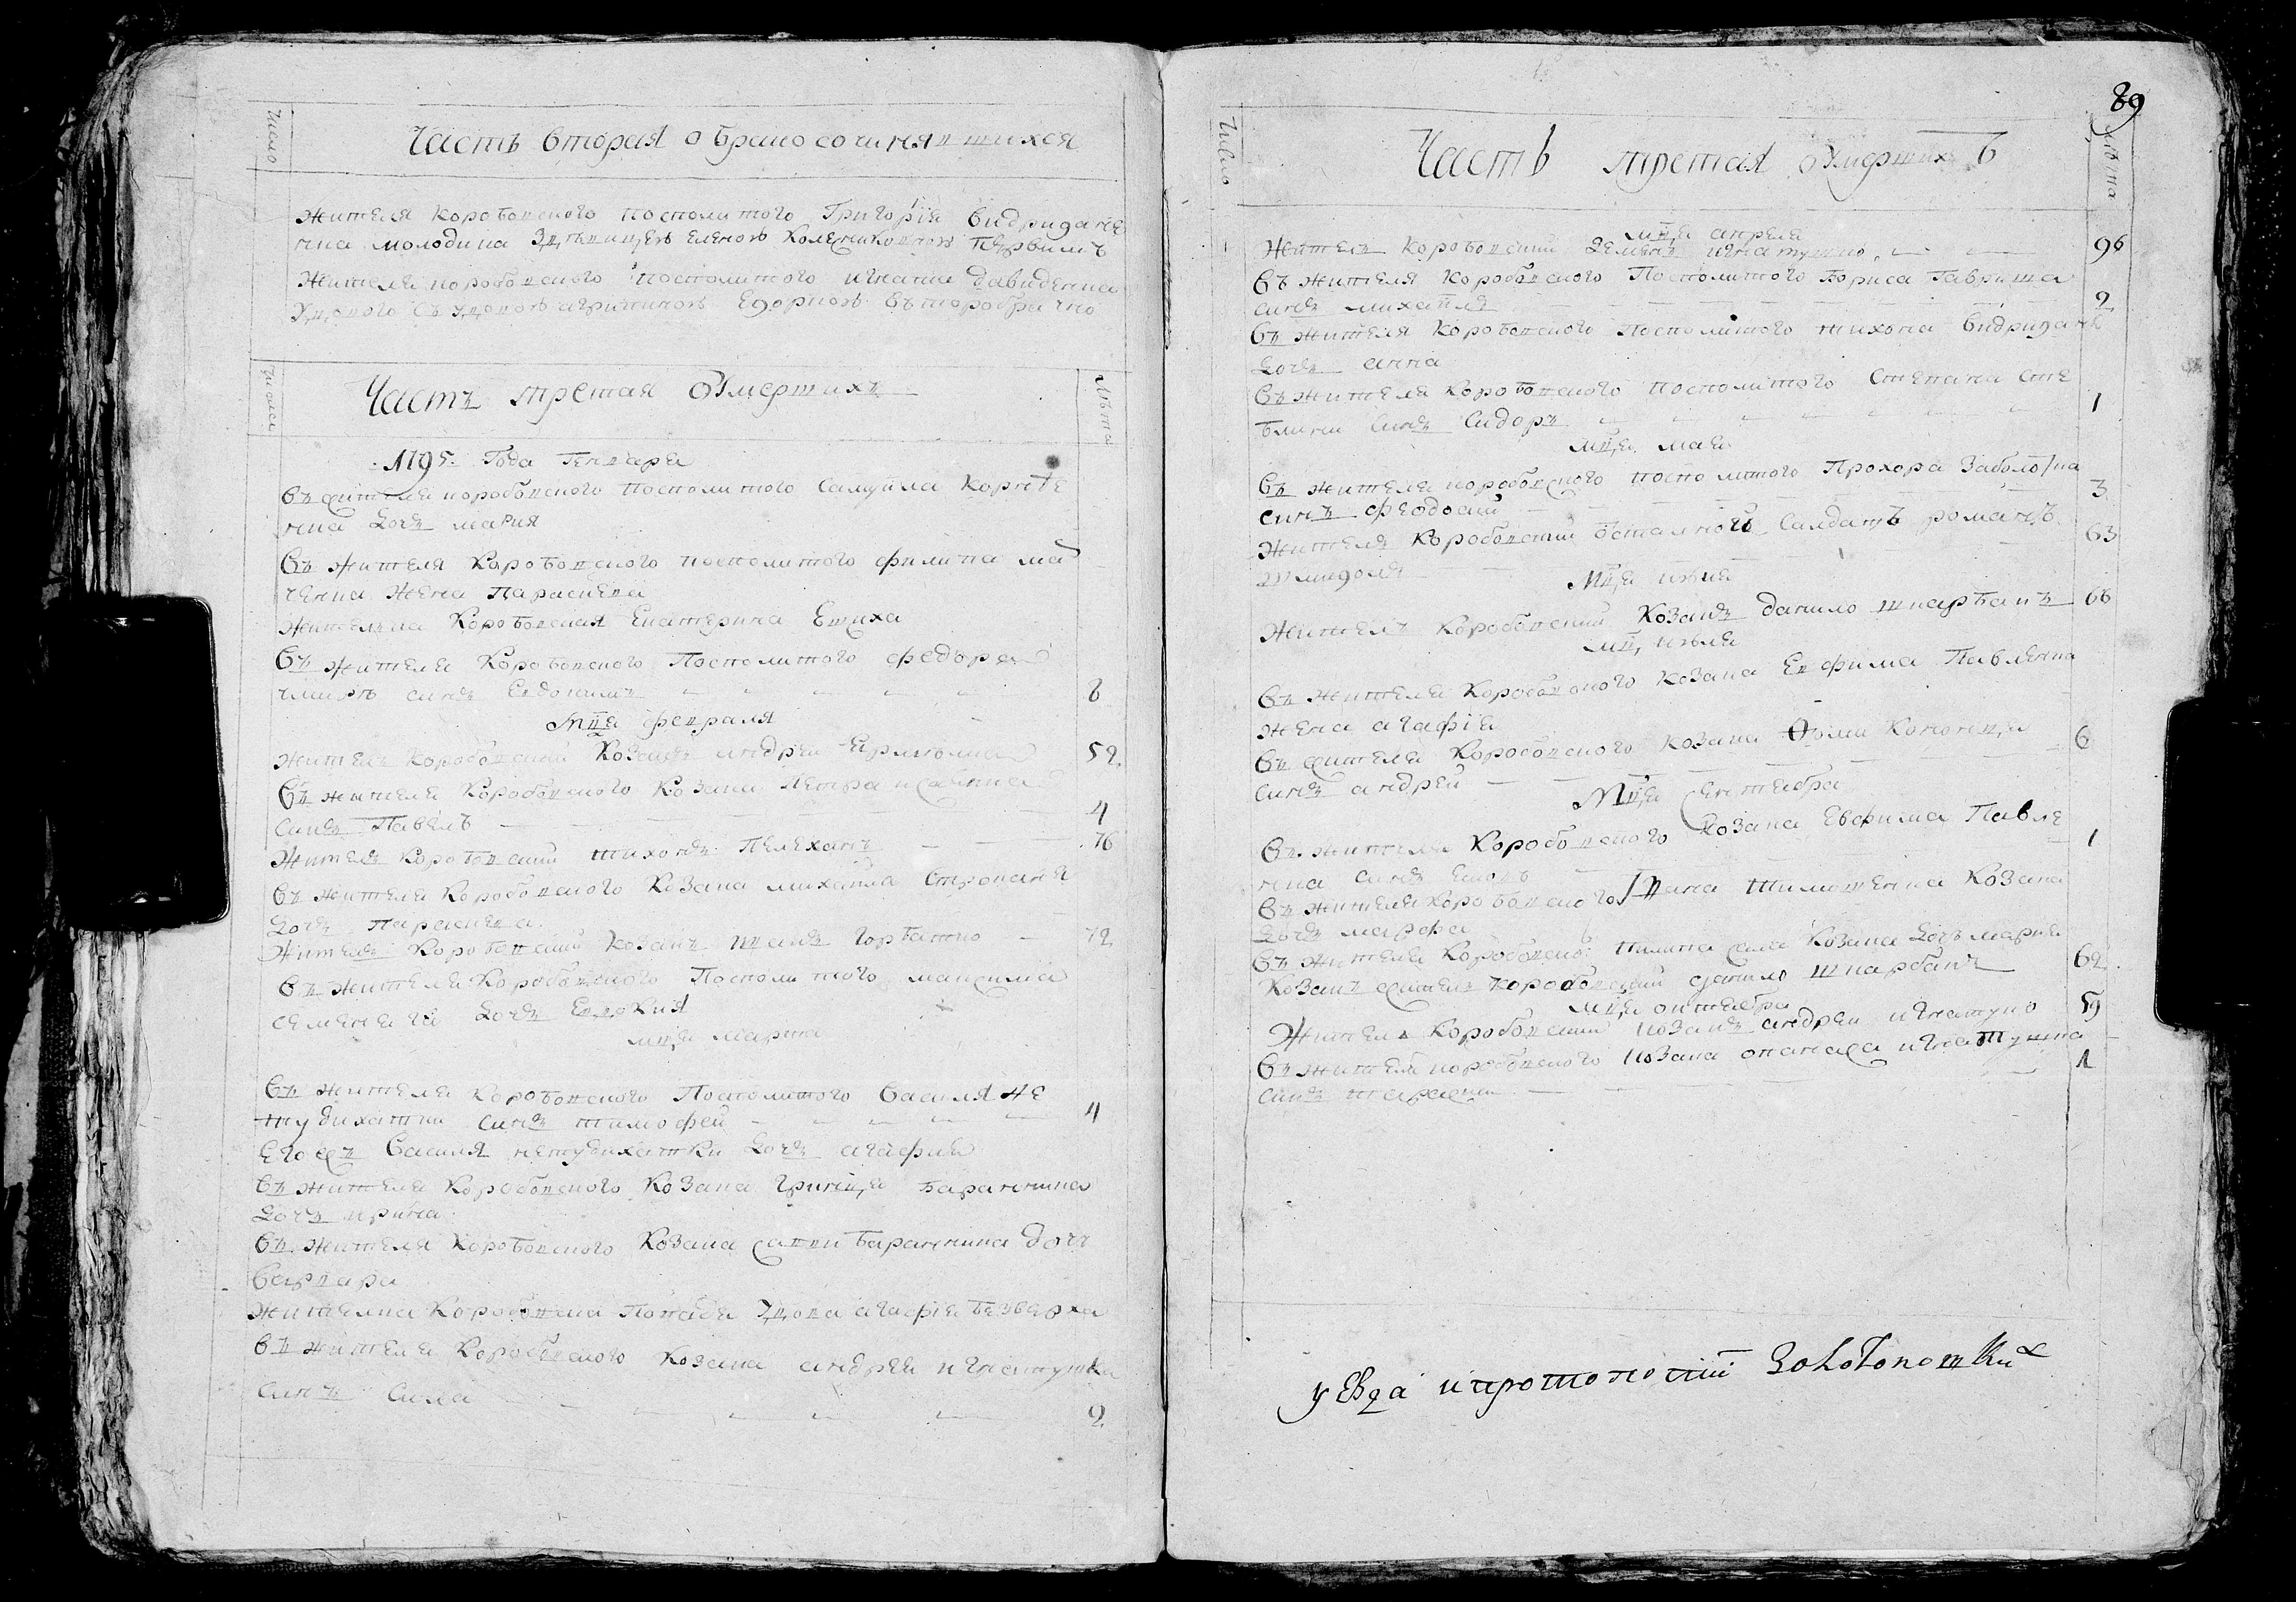 Число
Часть вторая о брако сочинявшихся
жителя коробовского посполитого Григорія видридаче
нка молодика з дѣвицею еленою Колесниковною первимъ
Жителя коробовского посполитого игната давиденка
удового съ удовою Едоркою второбрачно
Число
Часть третая о Умершихъ
Лѣта
1795 Года Генваря
въ жителя коробовского посполитого Самуила Корнѣе
нка дочь мария
въ жителя коробовского посполитого филипа ма
ченка жена Параскева
жителка Коробовская Екатерина
въ жителя Коробовского Посполитого федора
синъ Евдокимъ 8
Мца февраля
житель коробовский Козакъ андрей 52
въ жителя Коробовского Козака Петра исаенка
синъ Павелъ 4
Житель коробовский тихонъ Пелеханъ 76
въ жителя коробовского Козака михаила
дочь параскева
Житель Коробовский козакъ иванъ горбатко 72
въ жителя Коробовского Посполитого максима
семенеги дочь Евдокия
мца марта
въ жителя коробовского Посполитого василя не
тудихатки синъ тимофей 4
его жъ василя нетудихатки дочь агафия
въ жителя Коробовского Козака грицка баранника
дочь ирина
въ жителя Коробовского Козака савки баранника дочь
варвара
жителка Коробовска Попадя удова агафія безверха
въ жителя Коробовского козака андрея игнатушка
синъ сила 2
89
Число
Часть третая о Умершихъ
лѣта
мца апреля
Житель коробовский Демянъ игнатушко 96
въ жителя коробовского Посполитого бориса Гавриша
синъ михайля 2
въ жителя коробовского посполитого тихона видридаче
дочь анна
въ жителя коробовского посполитого Степана сте
блини синъ сидоръ 1
мца мая
въ жителя коробовского посполитого Прохора Заболотна
синъ феодосий 3
житель коробовский отставной Салдатъ романъ
63
Мца июня
житель коробовский козакъ данило шкарбанъ 66
мца июля
въ жителя коробовского козака Евфима Павленка
жена агафія
въ жителя коробовского козака Фоми Кононца
синъ андрей 6
Мца Сентебра
въ жителя коробовского козака Евфима Павле
нка синъ 1
въ жителя коробовского Ивана тимошенка козака
дочь марфа
въ жителя коробовско: козака дочъ мария
козакъ житель коробовский данило шкарбанъ 62
мца октебра
Житель коробовский козакъ андрей игнатуко 59
въ жителя коробовского козака опанаса игнатушка
синъ тарасий 1
уезда и протопопии Золотоношки